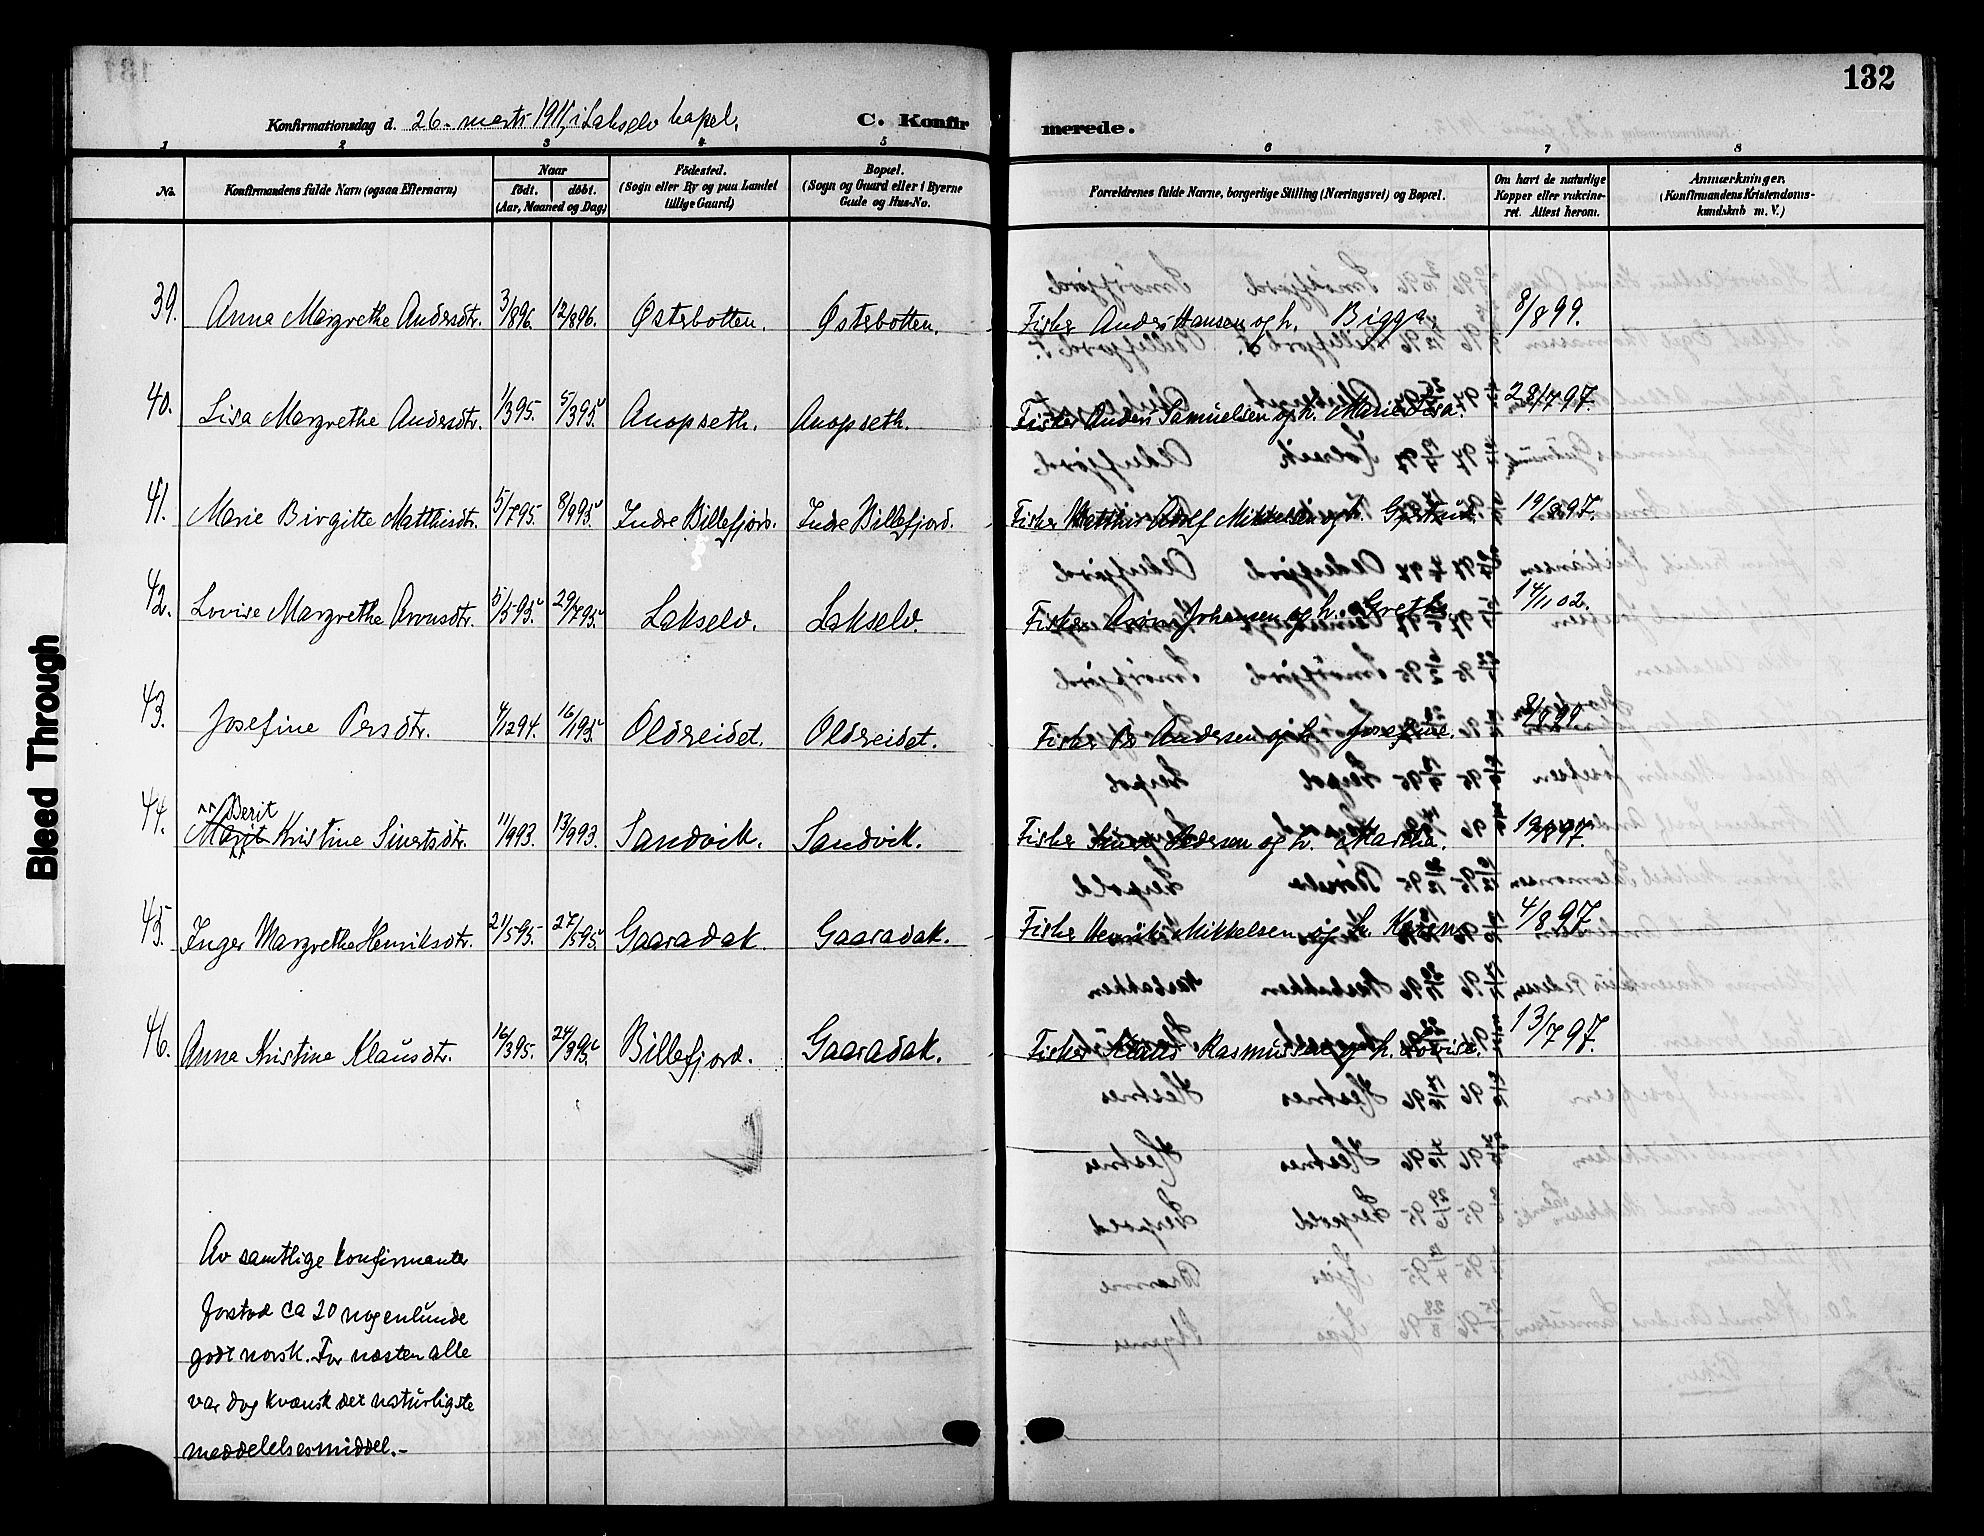 132
Konfirmationsdag d. 26. marts 1911, i Lakselv kapel. C. Konfirmerede.
1 2 3 4 5 6 7 8
No. Konfirmandens fulde Navn (ogsaa Efternavn) Naar født. døbt. (Aar, Maaned og Dag) Fødested. (Sogn eller By og paa Landet tillige Gaard) Bopæl. (Sogn og Gaard eller i Byerne Gade og Hus-No. Forældrenes fulde Navne, borgerlige Stilling (Næringsvei) og Bopæl. Om havt de naturlige Kopper eller vakcineret. Attest herom. Anmærkninger, (Konfirmandens Kristendomskundskab m. V.)
39. Anna Margrethe Andersdtr. 3/8 96. 12/8 96. Østerbotten. Østerbotten. Fisker Anders Hansen og h. Bigga 8/8 99.
40. Lisa Margrethe Andersdtr. 1/3 95. 5/3 95. Anopseth. Anopseth. Fisker Anders Samuelsen og h. Marie Lisa. 28/7 97.
41. Marie Birgitte Matthisdtr. 5/7 95. 8/9 95. Indre Billefjord. Indre Billefjord. Fisker Matthis Adolf Mikkelsen og h. Gjertrud. 19/8 97.
42. Lovise Margrethe Aronsdtr. 5/5 95. 29/7 95. Lakselv. Lakselv. Fisker Aron Johansen og h. Grethe 14/11 02.
43. Josefine Persdtr. 4/12 94. 16/1 95. Oldreidet. Oldreidet. Fisker Per Andersen og h. Josefine. 8/8 99.
44. Berit
Marit Kristine Sivertsdtr. 11/9 93. 13/9 93. Sandvik. Sandvik. Fisker Sivert Pedersen og h. Martha. 19/8 97.
45. Inger Margrethe Henriksdtr. 21/5 95. 27/5 95 Gaaradak Gaaradak. Fisker Henrik Mikkelsen og h. Karen 4/8 97.
46. Anna Kristine Klausdtr. 16/3 95. 24/3 95. Billefjord. Gaaradak. Fisker Klaus Rasmussen og h. Lovise. 13/7 97.
Av samtlige konfirmanter
forstod ca 20 nogenlunde
godt norsk. For næsten alle
var dog kvænsk det naturligste
meddelelsesmiddel.-
Bleed Through